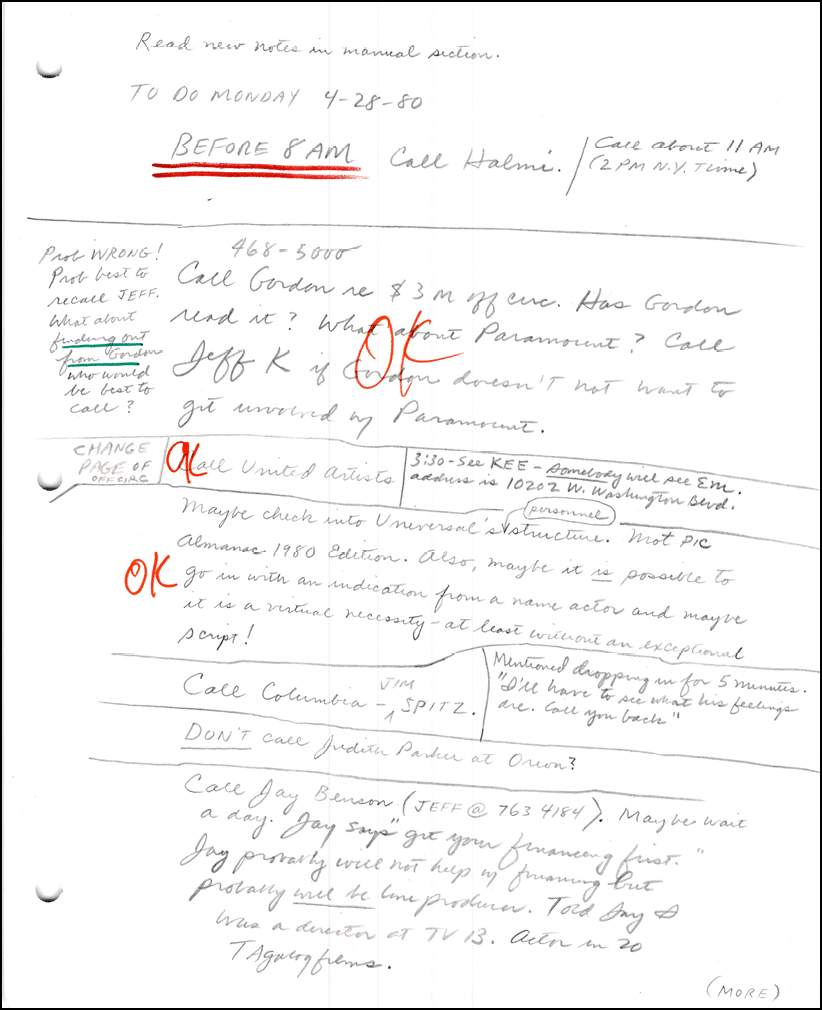 Read new notes in manual section.
TO DO MONDAY 4-28-80
BEFORE 8 AM Call Halmi.
Call about 11 AM
(2 PM N.Y. Time)
Prob WRONG!
Prob best to
recall JEFF.
What about
finding out
from Gordon
who would
be best to
call?
468-5000
Call Gordon re $3 M off circ. Has Gordon
read it? What about Paramount? Call
Jeff K if Gordon doesn't not want to
get involved w/ Paramount.
OK
CHANGE
PAGE OF
OFF CIRC
OK
Call United Artists
3:30-See KEE - somebody will see EM.
address is 10202 W. Washington Blvd.
personnel
Maybe check into Universal's structure. Mot PIC
Almanac 1980 Edition. Also, maybe it is possible to
go in with an indication from a name actor and maybe
it is a virtual necessity - at least without an exceptional
script!
OK
JIM
Call Columbia - SPITZ.
Mentioned dropping in for 5 minutes.
"I'll have to see what his feelings
are. Call you back"
DON'T call Judith Parker at Orion?
Call Jay Benson (JEFF @ 763 4184). Maybe wait
a day. Jay says "get your financing first."
Jay probably will not help w/ financing but
probably will be line producer. Told Jay I
was a director at TV 13. Actor in 20
TAgalog films.
(MORE)